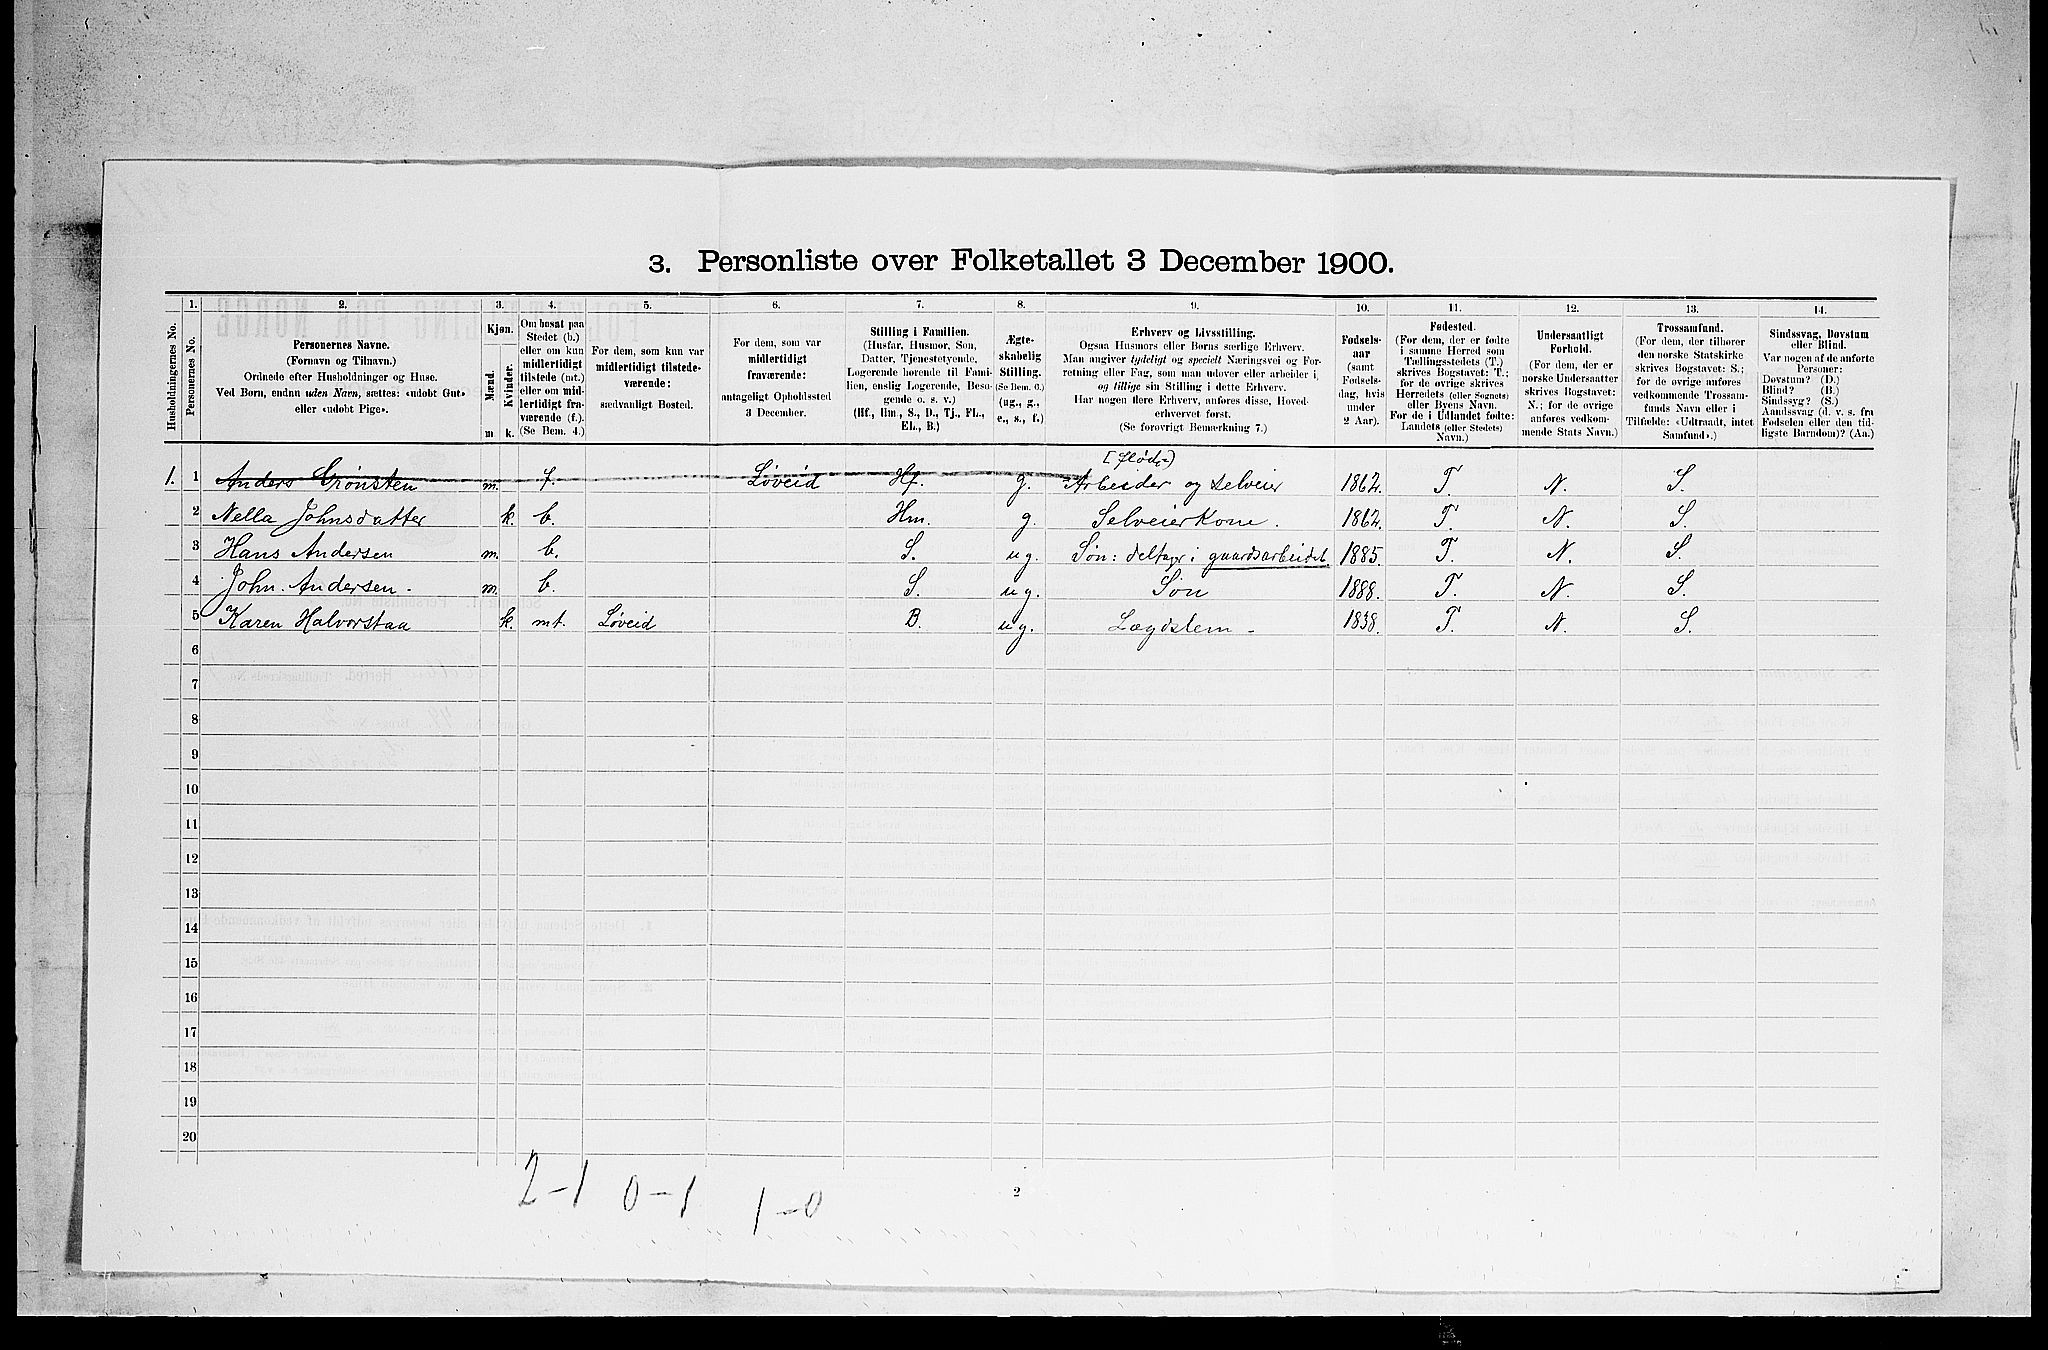 3. Personliste over Folketallet 3 December 1900.
1. 2. 3. 4. 5. 6. 7. 8. 9. 10. 11. 12. 13. 14.
Husholdningernes No.
Personernes No.
Personernes Navne.
(Fornavn og Tilnavn.)
Ordnede efter Husholdninger og Huse.
Ved Børn, endnu uden Navn, sættes: «udøbt Gut»
eller «udøbt Pige».
Kjøn.
Mænd.
Kvinder.
m. k.
Om bosat paa
Stedet (b.)
eller om kun
midlertidigt
tilstede (mt.)
eller om mid-
lertidigt fra-
værende (f.).
(Se Bem. 4.)
For dem, som kun var
midlertidigt tilstede-
værende:
sædvanligt Bosted.
For dem, som var
midlertidigt
fraværende:
antageligt Opholdssted
3 December.
Stilling i Familien.
(Husfar, Husmor, Søn,
Datter, Tjenestetyende,
Logerende hørende til Fami-
lien, enslig Logerende, Besø-
gende o. s. v.)
(Hf., Hm., S., D., Tj., FL.,
EL., B.)
Ægte-
skabelig
Stilling.
(Se Bem. 6.)
(ug., g.,
e., s., f.)
Erhverv og Livsstilling.
Ogsaa Husmors eller Børns særlige Erhverv.
Man angiver tydeligt og specielt Næringsvei og For-
retning eller Fag, som man udøver eller arbeider i,
og tillige sin Stilling i dette Erhverv.
Har nogen flere Erhverv, anføres disse, Hoved-
erhvervet først.
(Se forøvrigt Bemærkning 7.)
Fødsels-
aar
(samt
Fødsels-
dag, hvis
under
2 Aar).
Fødested.
(For dem, der er fødte
i samme Herred som
Tællingsstedets (T.)
skrives Bogstavet: T.;
for de øvrige skrives
Herredets (eller Sognets)
eller Byens Navn.
For de i Udlandet fødte:
Landets (eller Stedets)
Navn.)
Undersaatligt
Forhold.
(For dem, der er
norske Undersaatter
skrives Bogstavet:
N.; for de øvrige
anføres vedkom-
mende Stats Navn.)
Trossamfund.
(For dem, der tilhører
den norske Statskirke
skrives Bogstavet: S.;
for de øvrige anføres
vedkommende Trossam-
funds Navn eller i
Tilfælde: «Udtraadt, intet
Samfund».)
Sindssvag, Døvstum
eller Blind.
Var nogen af de anførte
Personer:
Døvstum? (D.)
Blind? (B.)
Sindssyg? (S.)
Aandssvag (d. v. s. fra
Fødselen eller den tid-
ligste Barndom)? (Aa.)
1. 1 Anders Grønsten m. f. Løveid Hf. g. Arbeider og selveier 1862. T. N. S.
2 Nella Johnsdatter k. b. Hm. g. Selveierkone. 1862. T. N. S.
3 Hans Andersen m. b. S. ug. Søn: deltager i gaardsarbeidet. 1885. T. N. S.
4 John. Andersen. m. b. S. ug. Søn 1888. T. N. S.
5 Karen Halvorstaa k. mt. Løveid B. ug. Lægdslem 1838. T. N. S.
6
7
8
9
10
11
12
13
14
15
16
17
18
19
20
2-1 0-1 1-0
2